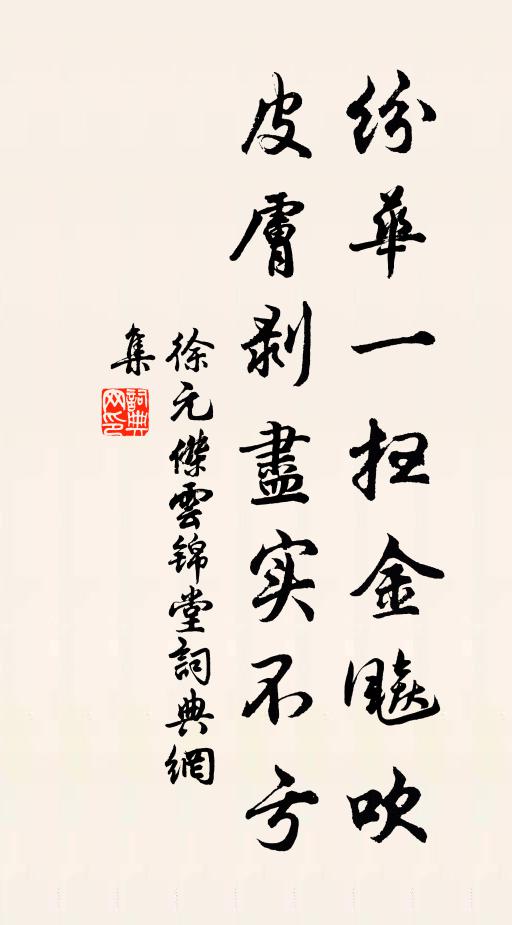 纷華一扫金飈吹
皮膚剥盡实不亏
徐元傑雲锦堂詞典網
集
詞典
网印